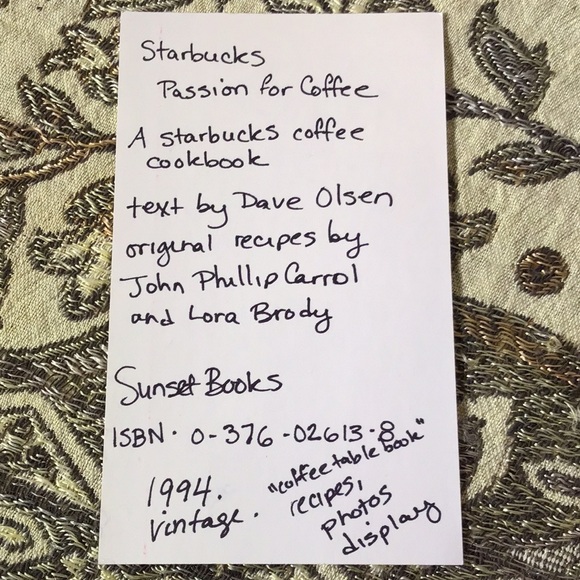 Starbucks
Passion for Coffee
A starbucks coffee
cookbook
text by Dave Olsen
original recipes by
John Phillip Carrol
and Lora Brody
Sunset Books
ISBN. 0-376-02613-8
1994.
vintage.
"coffee table book"
recipes,
photos
display